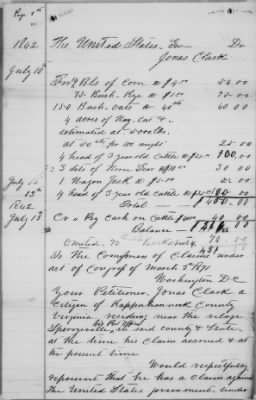 1862 The United States, Dr
Jonas Clark
July 10th
Bls of Corn @ $4.00
75 Bush. Rye @ $1.00 75.00
150 Bush. Oats @ 40cts 60 00
4 acres of Hay, cut &
estimated at
at 50cts per 100
4 head of 3 year old Cattle @ $25 100.00
3 Sets of 30 00
July 1 Wagon Jack @
13th 4 head of 3 year old Cattle @ $25 100.00
1862 Total
July 13th Cr By cash on Cattle 40 00
Balance
70.00
481
To the Commissioners of Claims under
act of Congress of March 3rd 1871
Washington D.C
Your Petitioner, Jonas Clark a
Citizen of Rappahannock County
Virginia residing near the village
Sperryville, in said County & State,
his Post Office
at the time his claim accrued & at
the present time
Would respectfully
represent that he has a claim against
The United States government, under